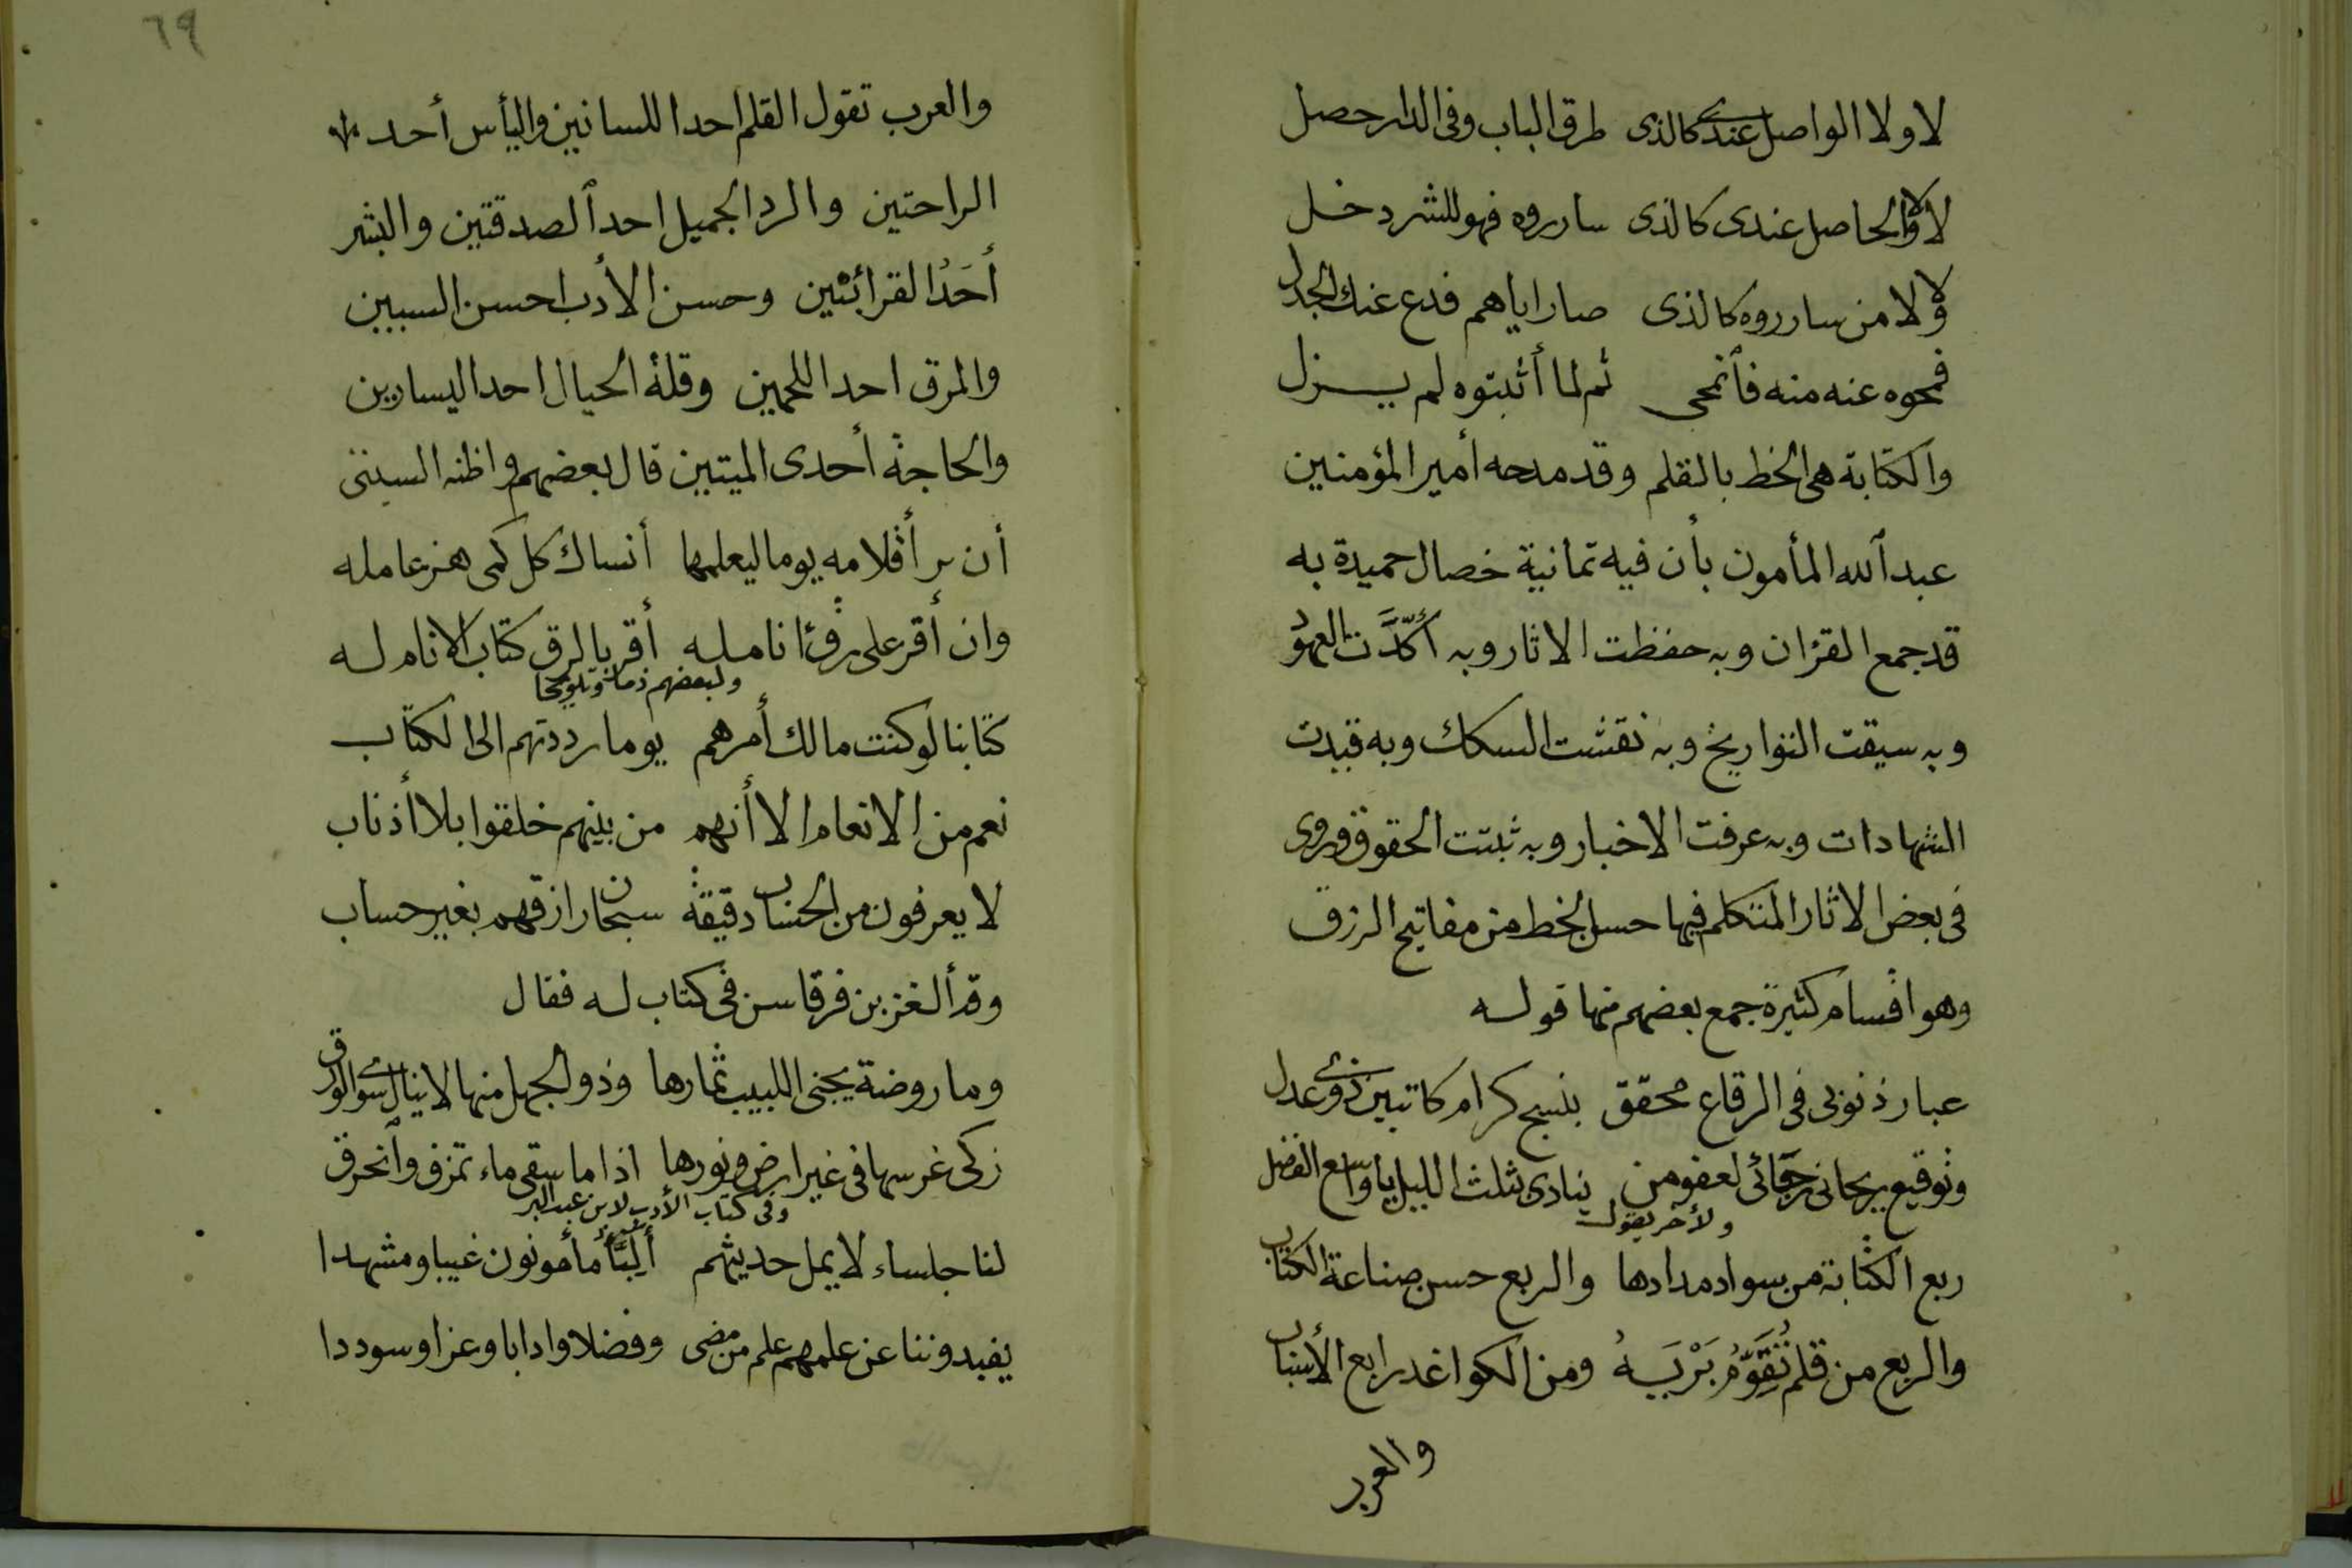 لا ولا الواصل عندى كالذى طرق الباب وفى الدار حصل
لا ولا الحاصل عندى كالذى سارروه فهو للشر دخل
ولا لا من سارروه كالذى صار اياهم فدع عنك الجدل
فمحوه عنه منه فآنمحى ثم لما أثبتوه لم يزل
والكتابة هى الخط بالقلم وقد مدحه أمير المؤمنين
عبد آلله المأمون بأن فيه ثمانية خصال حميدة به
قد جمع القرٔان وبه حفظت الاثار وبه أُكّدَت العهود
وبه سيقت التواريخ وبه نقشت السكك وبه قيدت
الشهادات وبه عرفت الاخبار وبه ثبتت الحقوق وروى
فى بعض الاثار المتكلم فيها حسن الخط من مفاتيح الرزق
وهو اقسام كثيرة جمع بعضهم منها قوله
عبار ذنوبى فى الرقاع محقق بنسج كرام كاتبين ذوى عدل
وتوقيع ريحانى رجائى لعفو من ينادى بثلث الليل يا واسع الفضل
ولأخر يقول
ربع الكتابة من سواد مدادها والربع حسن صناعة الكتاب
والربع من قلم تُقَوِّمُ بَرْيَهُ ومن الكواغد رابع الأسباب
والعرب
٦٩
والعرب تقول القلم احدا للسانين واليأس أحد
الراحتين والرد الجميل احد آلصدقتين والبشر
أَحَدُ القرائتين وحسن الأدب احسن السببين
والمرق احد اللحمين وقلة الحيال احد اليسارين
والحاجة أحدى الميتين قال بعضهم واظنه السبتى
أن بر أقلامه يوما ليعلمها أنساك كل كمى هز عامله
وان أقر على رق أنامله أقر بالرق كتاب الانام له
ولبعضهم ذما وتلويحا
كتابنا لو كنت مالك أمرهم يوما رددتهم الى الكتاب
نعم من الانعام الا أنهم من بينهم خلقوا بلا أذناب
لا يعرفون من الحساب دقيقة سبحان رازقهم بغير حساب
وقد ألغز بن فرقاسن فى كتاب له فقال
وما روضة يجنى اللبيب ثمارها وذو الجهل منها لا ينال سوى الورق
زكى غرسها فى غير ارض ونورها اذا ما سقى ماء تمزق وآنخرق
وفى كتاب الأدب لابن عبد البر
لنا جلساء لا يمل حديثهم أَلِبَّأُ مأمونون غيبا ومشهدا
يفيدوننا عن علمهم علم من مضى وفضلا وادابا وعزا وسوددا